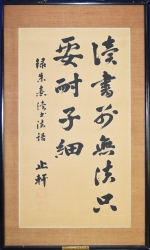 讀書別無法只
要耐子細
録朱熹讀書法語 止軒